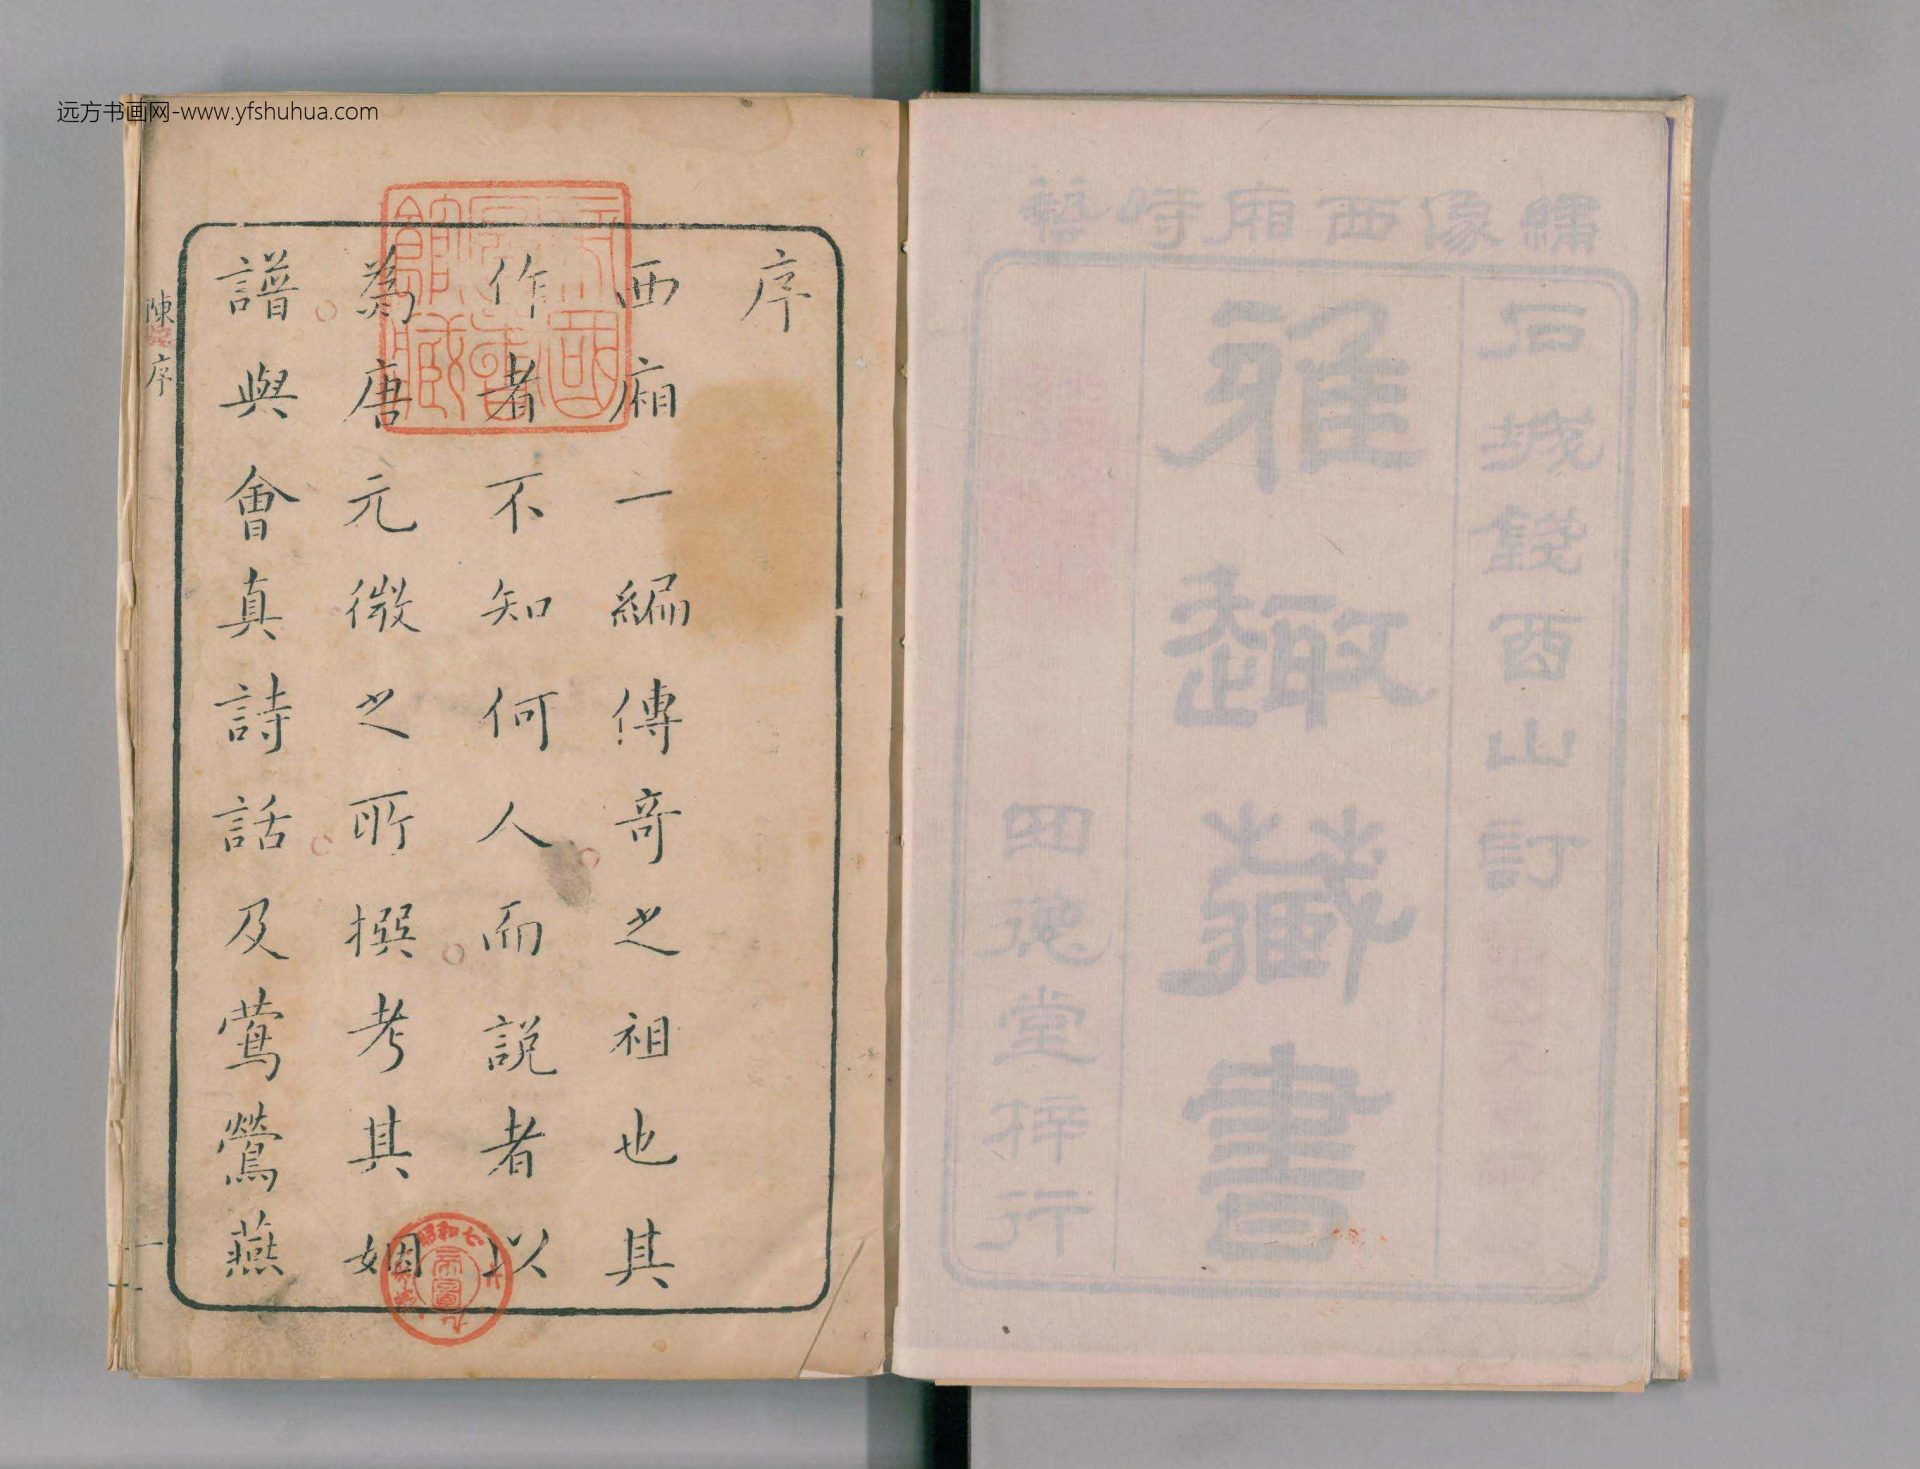 远方书画网-www.yfshuhua.com
繡像西廂時藝
石城錢酉山訂
雅趣藏書
四德堂梓行
序
西廂一編傳奇之祖也其
作者不知何人而說者以
為唐元微之所撰考其姻
譜與會真詩話及鶯鶯燕
陳序
一
帝國圖書館藏
昭和七